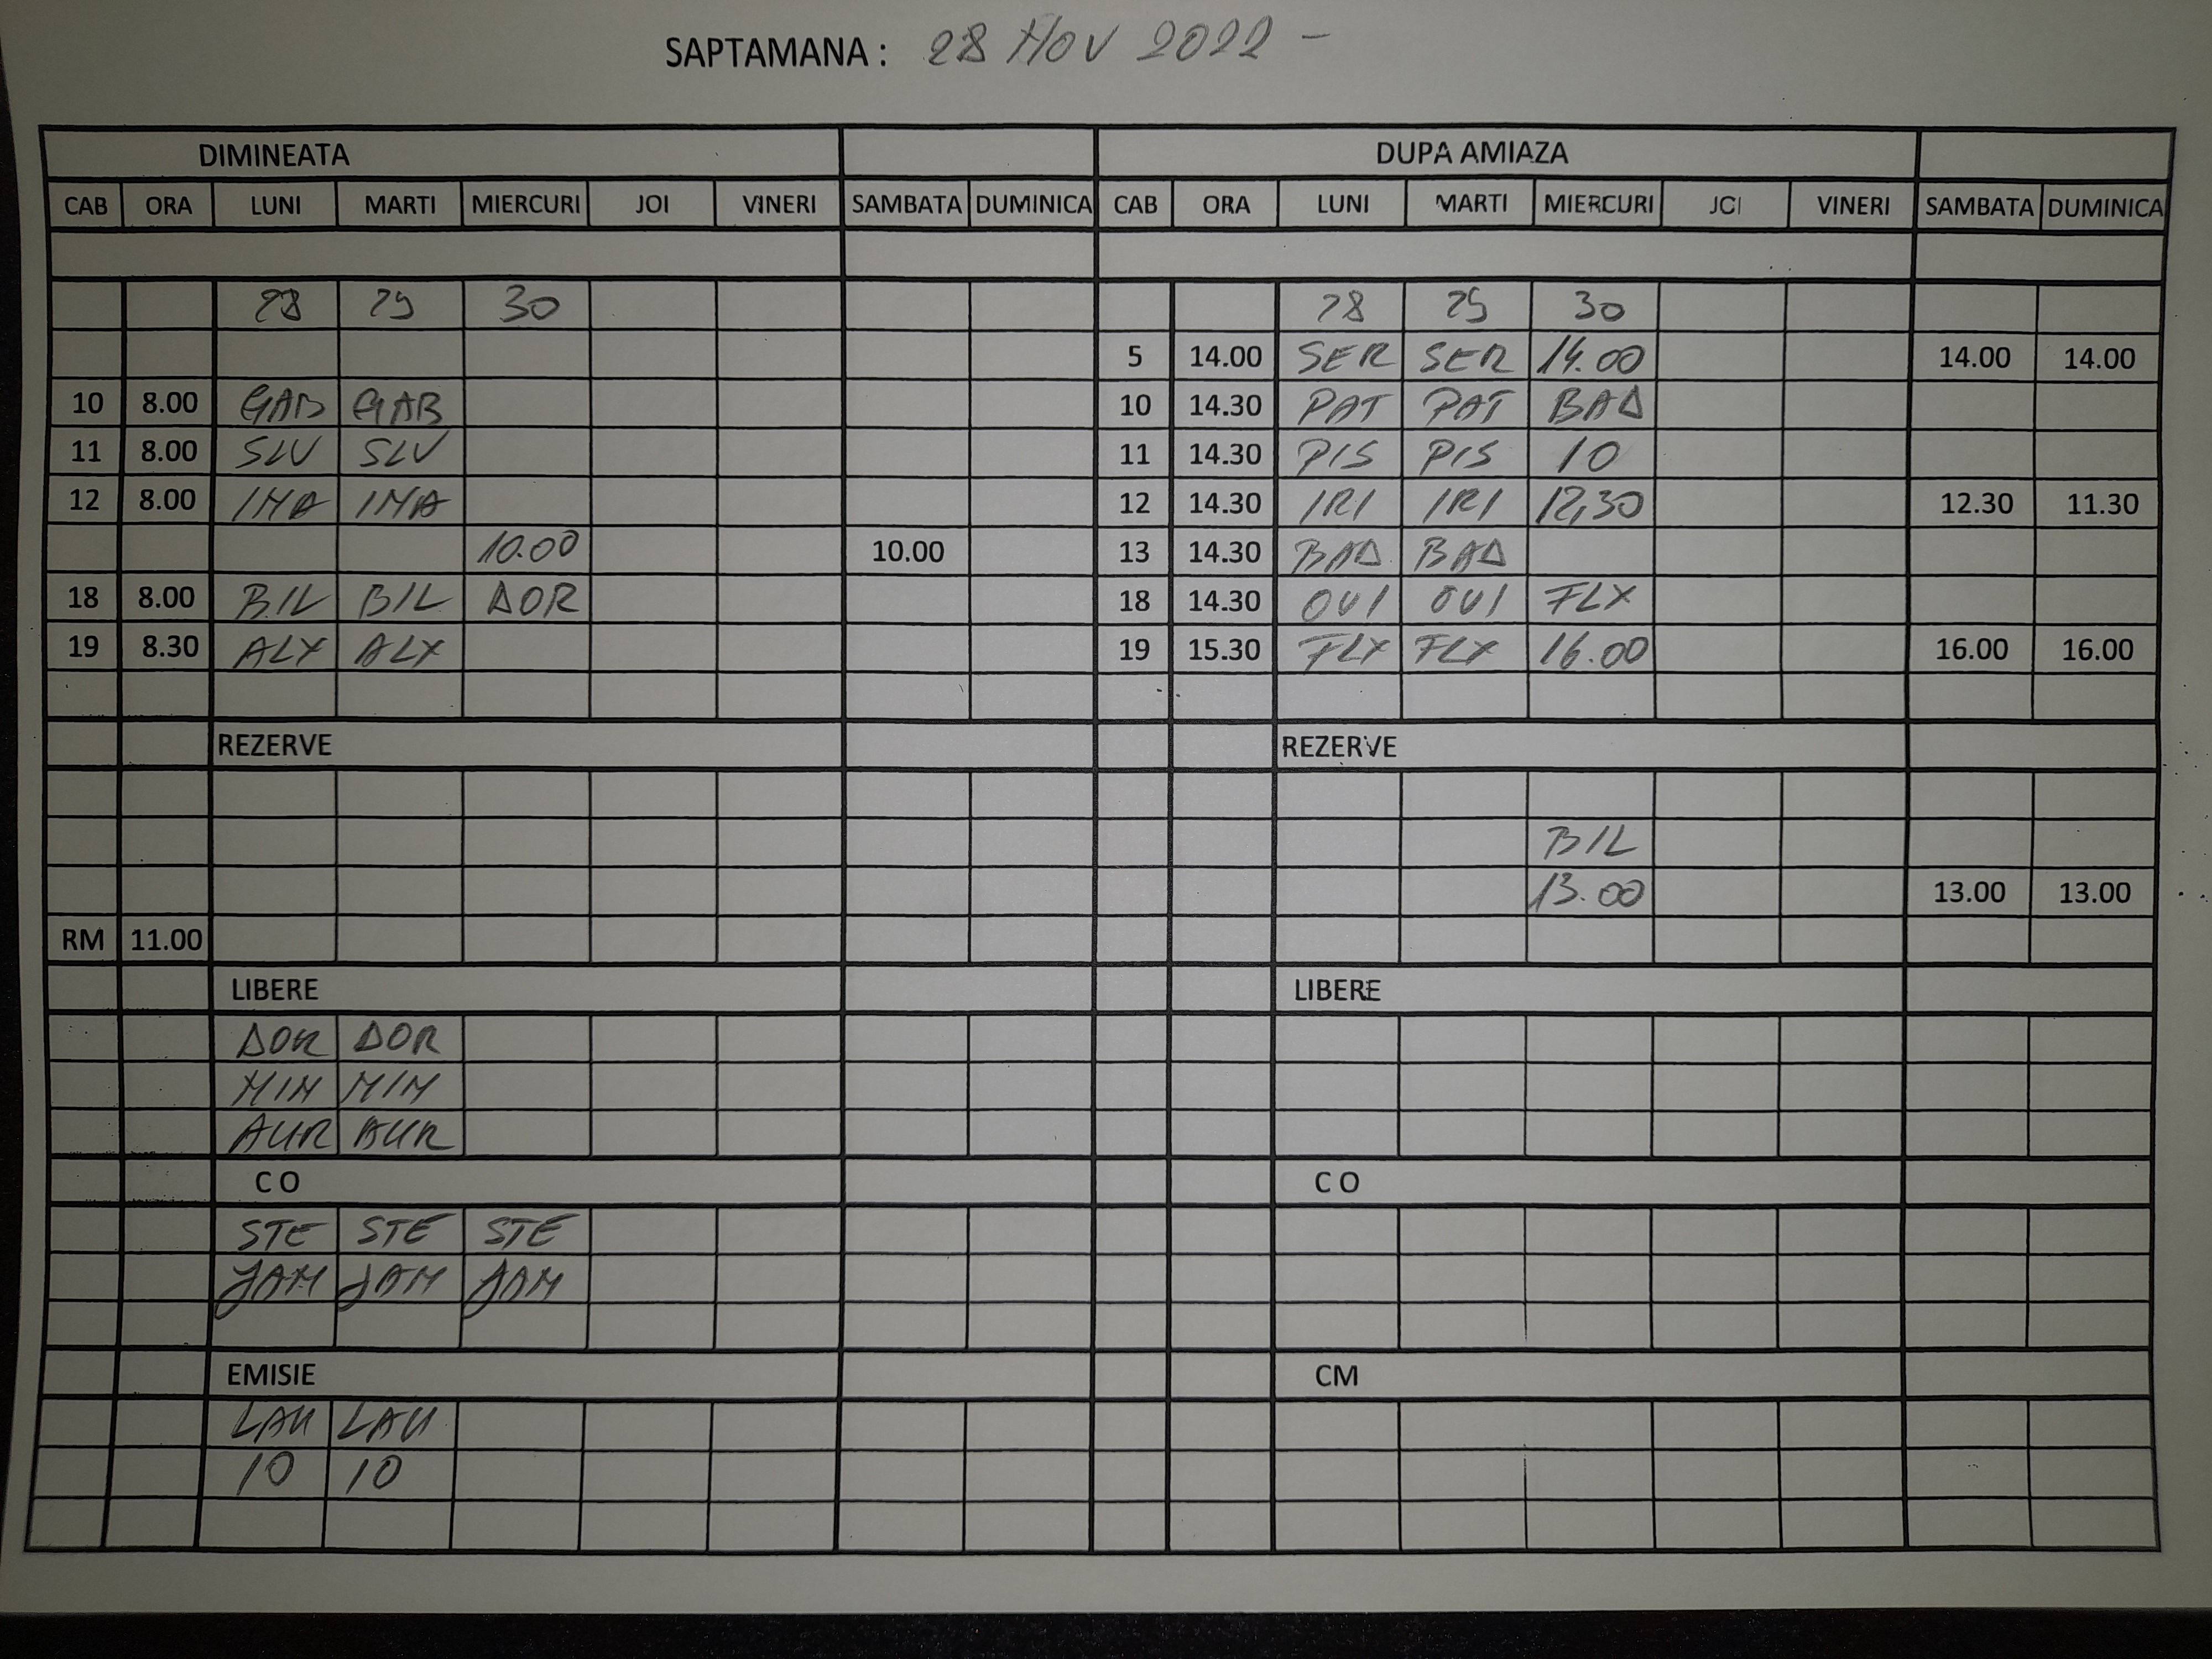 SAPTAMANA : 28 NOV 2022 -
DIMINEATA DUPA AMIAZA
CAB ORA LUNI MARTI MIERCURI JOI VINERI SAMBATA DUMINICA CAB ORA LUNI MARTI MIERCURI JOI VINERI SAMBATA DUMINICA
28 29 30 28 29 30
5 14.00 SER SER 14.00 14.00 14.00
10 8.00 GAB GAB 10 14.30 PAT PAT BAD
11 8.00 SLV SLV 11 14.30 PIS PIS 10
12 8.00 INA INA 12 14.30 IRI IRI 12,30 12.30 11.30
10.00 10.00 13 14.30 BAD BAD
18 8.00 BIL BIL DOR 18 14.30 OVI OVI FLX
19 8.30 ALX ALX 19 15.30 FLX FLX 16.00 16.00 16.00
REZERVE REZERVE
BIL
13.00 13.00 13.00
RM 11.00
LIBERE LIBERE
DOR DOR
MIH MIH
AUR AUR
C O C O
STE STE STE
JAM JAM JAM
EMISIE CM
LAU LAU
10 10